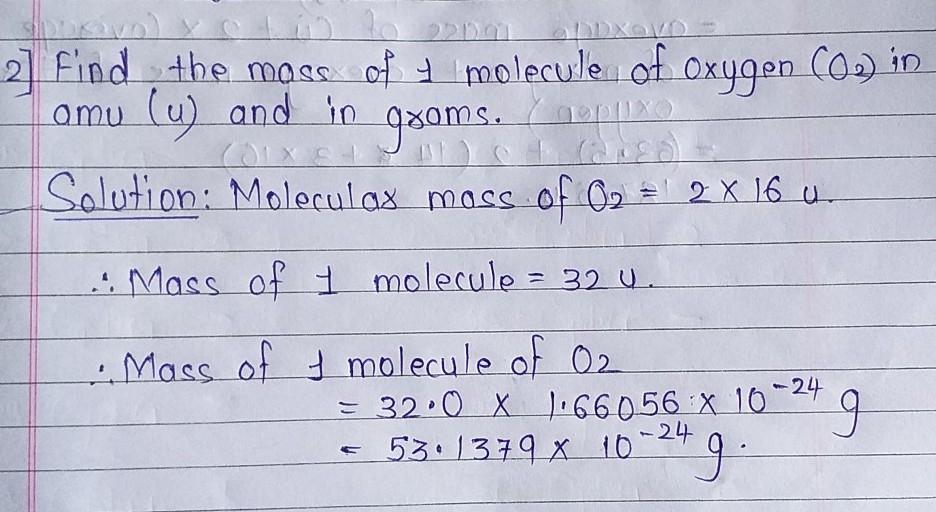 2] Find the mass of 1 molecule of oxygen (O2) in
amu (u) and in grams.
Solution: Molecular mass of O2 = 2 x 16 u.
∴ Mass of 1 molecule = 32 u.
∴ Mass of 1 molecule of O2
= 32.0 x 1.66056 x 10⁻²⁴ g
= 53.1379 x 10⁻²⁴ g.